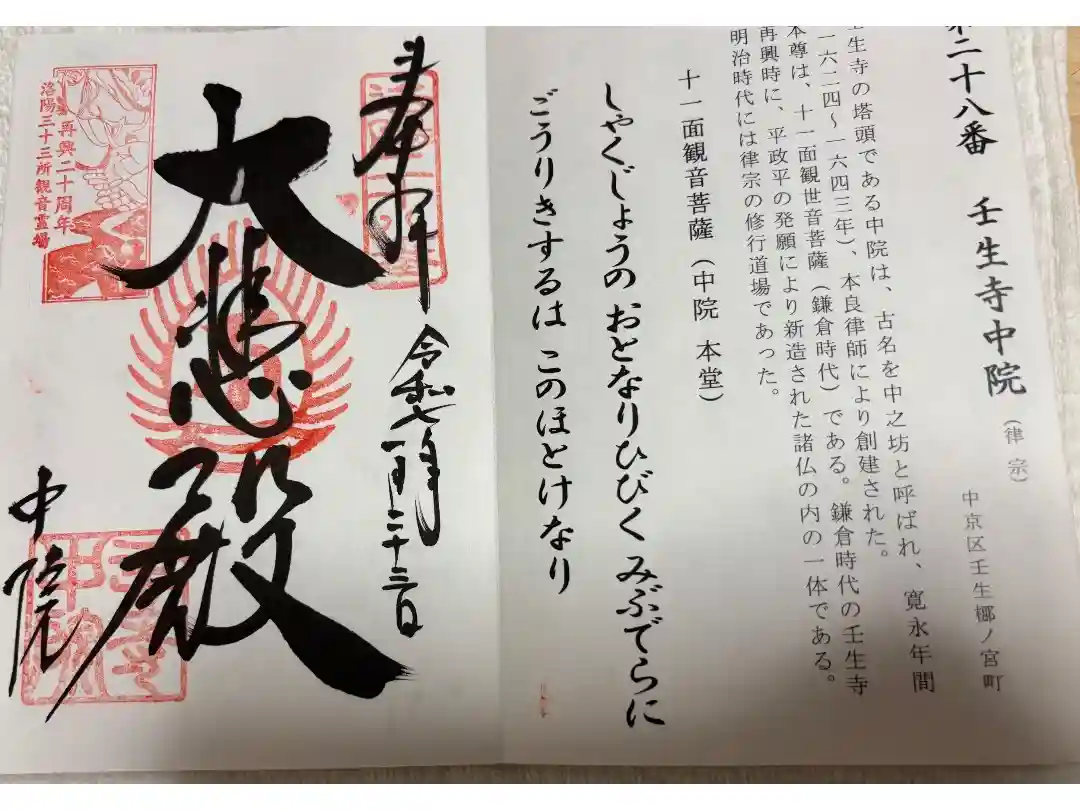 第二十八番 壬生寺中院(律宗)
中京区壬生梛ノ宮町
壬生寺の塔頭である中院は、古名を中之坊と呼ばれ、寛永年間
(一六二四〜一六四三年)、本良律師により創建された。
本尊は、十一面観世音菩薩(鎌倉時代)である。鎌倉時代の壬生寺
再興時に、平政平の発願により新造された諸仏の内の一体である。
明治時代には律宗の修行道場であった。
十一面観音菩薩(中院 本堂)
しゃくじょうの おとなりひびく みぶでらに
ごうりきするは このほとけなり
奉拝
令和七年 二十三日
大悲殿
中院
再興二十周年
洛陽三十三所観音霊場